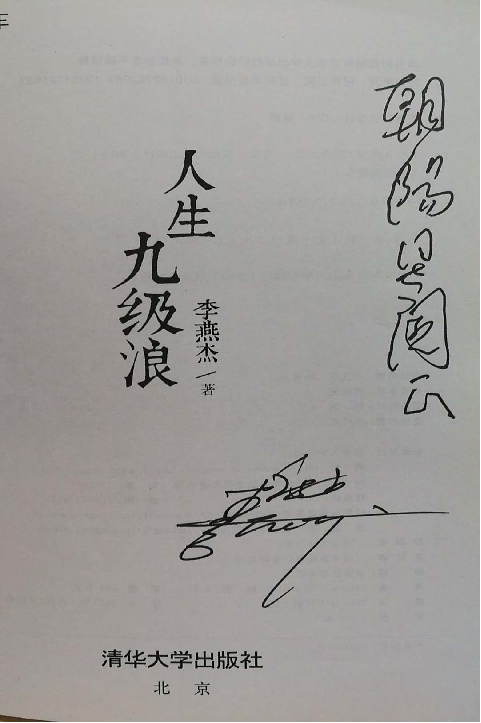 朝阳兄阅正
人生
九级浪
李燕杰／著
清华大学出版社
北京